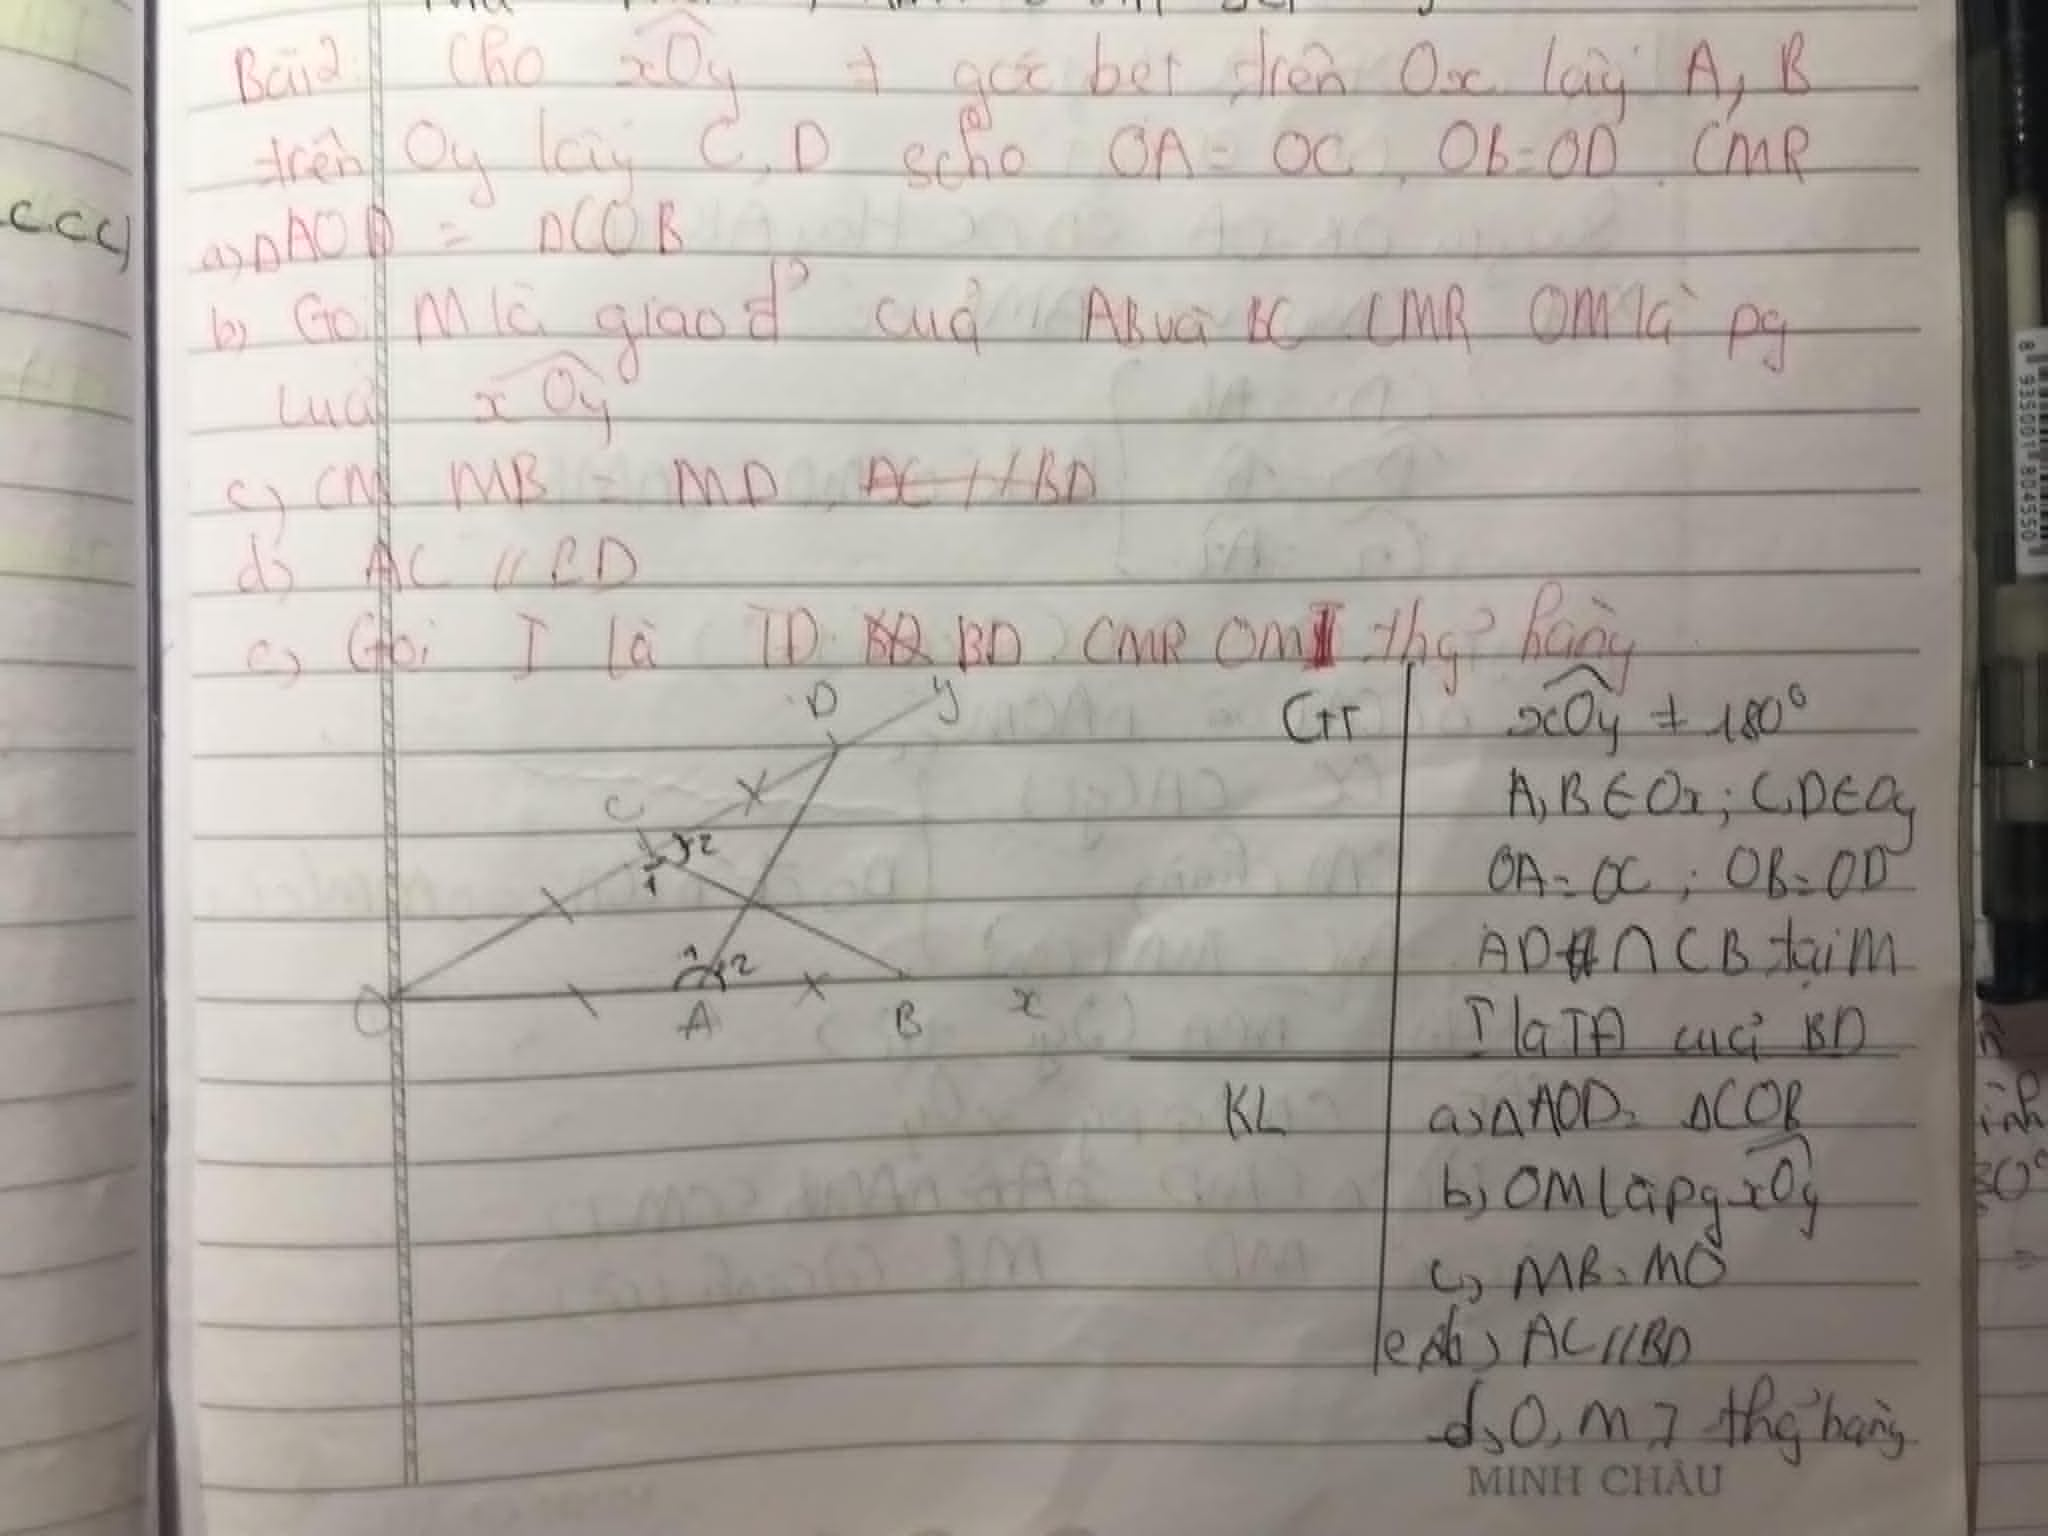 Bài 2: Cho xOy ≠ góc bẹt trên Ox lấy A, B
trên Oy lấy C, D scho OA = OC, OB=OD. CMR
a) ΔAOD = ΔCOB
b) Gọi M là giao đ' của AB và BC CMR OM là pg
của xOy
c) CM MB = MD, AC // BD
d) AC // BD
e) Gọi I là TD BD. CMR OMI thg? hàng
CCC)
D y
C
2
1
1 2
O A B x
GT
xOy ≠ 180°
A,B∈Ox; C,D∈Oy
OA=OC; OB=OD
AD ∩ CB tại M
I là TĐ của BD
KL
a) ΔAOD= ΔCOB
b) OM là pg xOy
c) MB=MD
e) AC//BD
d, O, M, I thg? hàng
MINH CHÂU
8 935001 804550